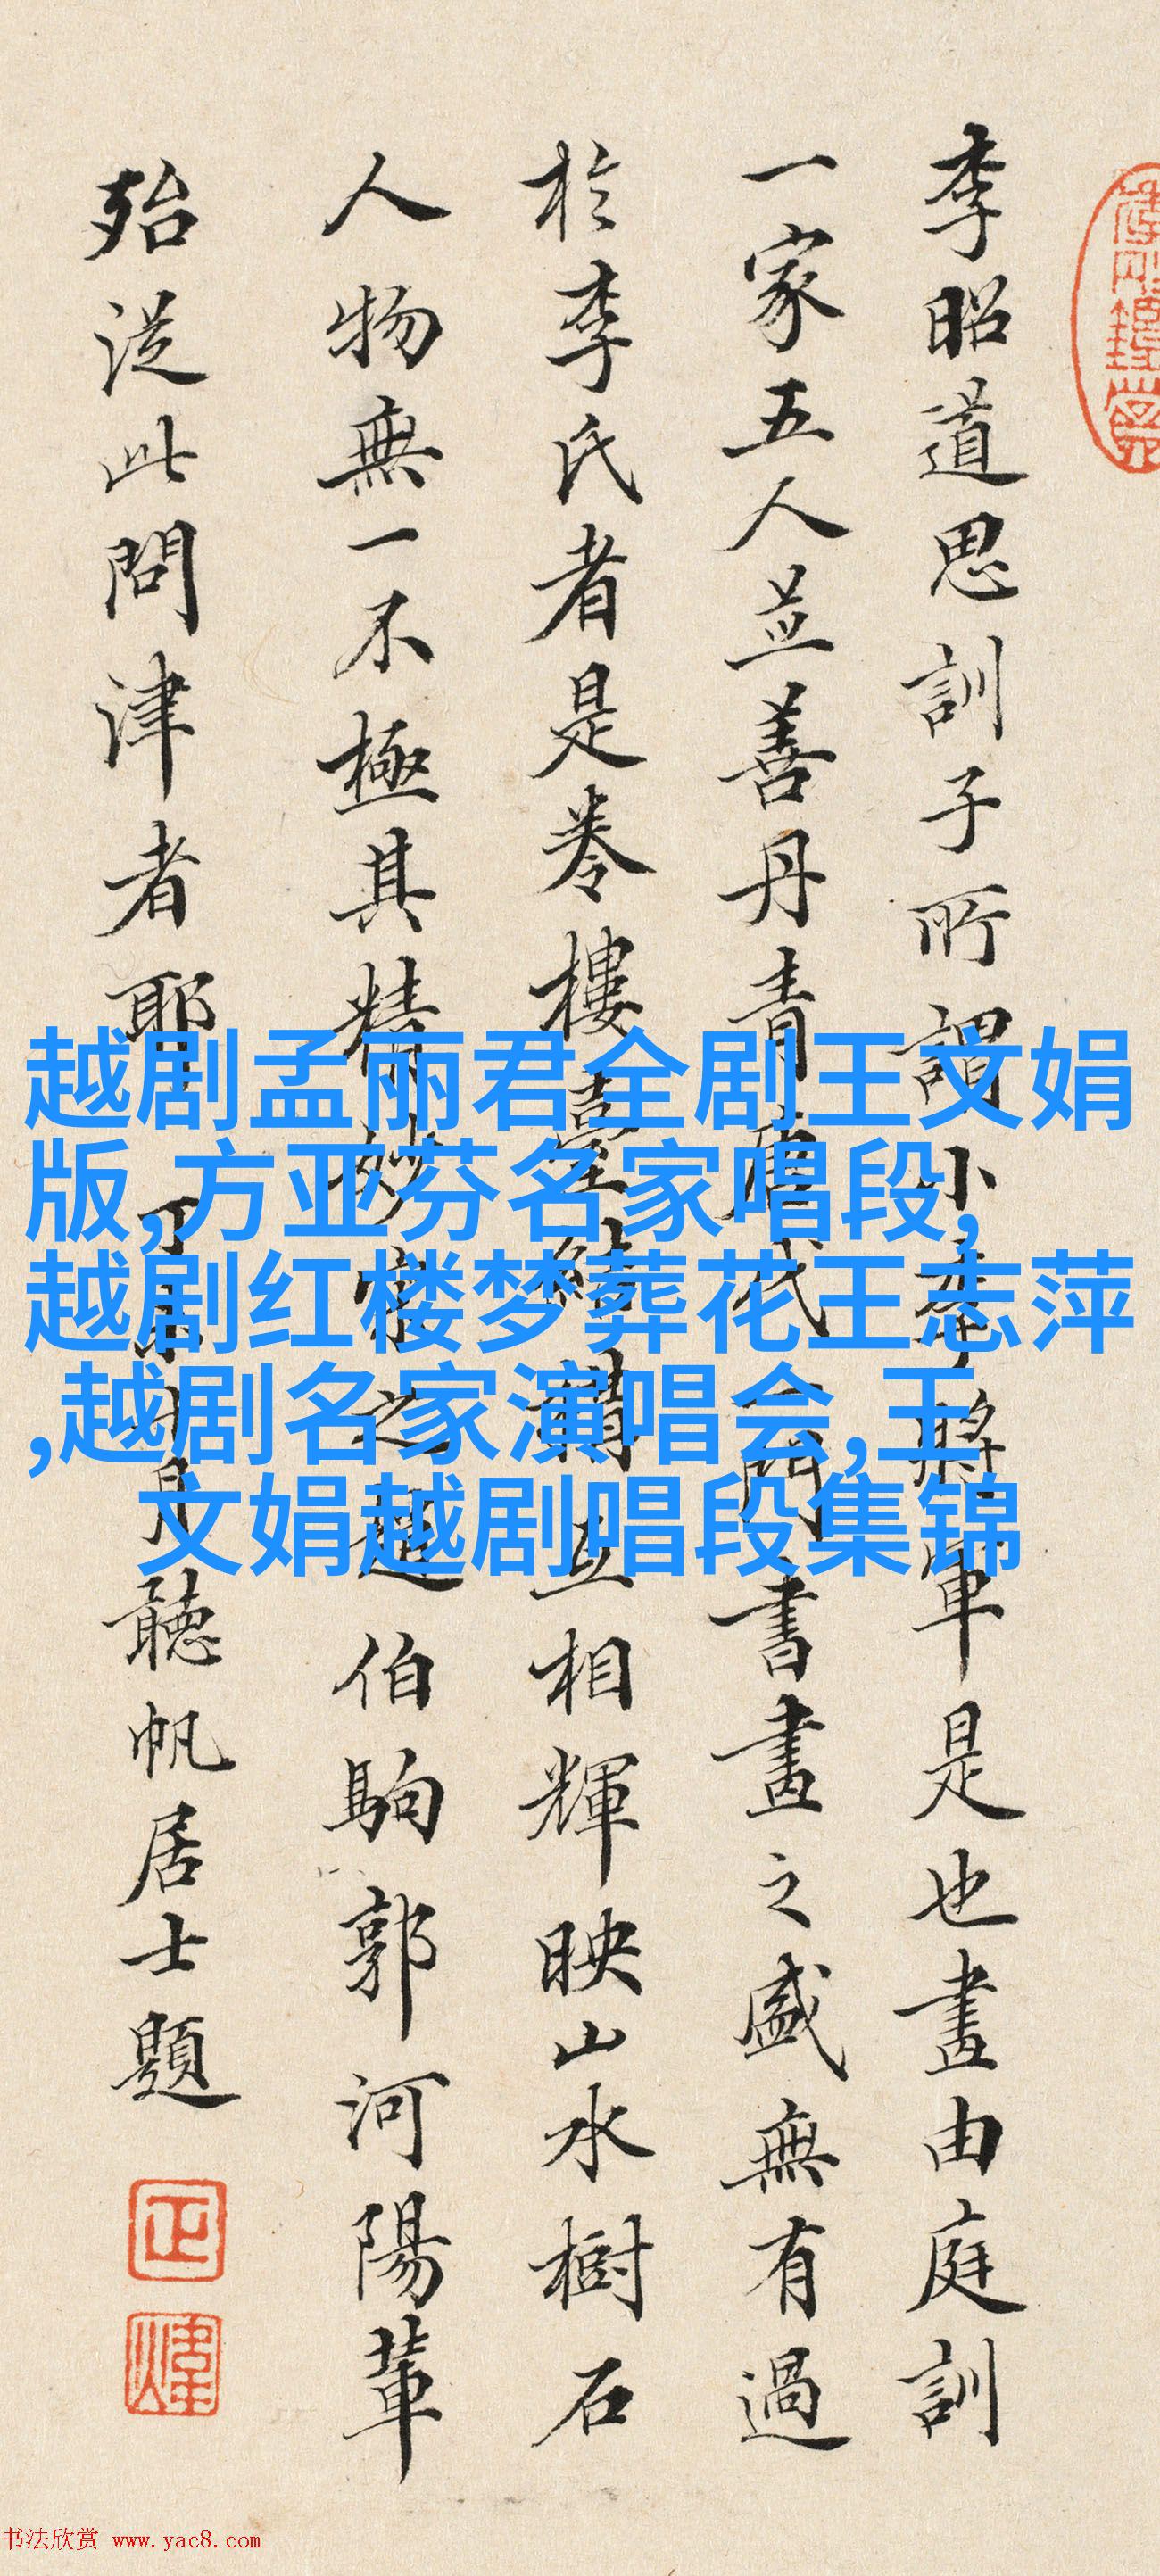 李昭道思訓子所謂小李將軍是也畫由庭訓
一家五人並善丹青唐代一門書畫之盛無有過
於李氏者是卷樓臺結構互相輝映山水樹石
人物無一不極其精妙宗之趙伯駒郭河陽輩
殆從此問津者耶
聽帆居士題
越剧孟丽君全剧王文娟
版,方亚芬名家唱段,
越剧红楼梦葬花王志萍
,越剧名家演唱会,王
文娟越剧唱段集锦
书法欣赏 www.yac8.com